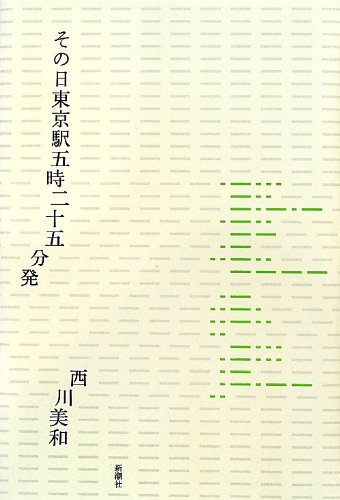 その日東京駅五時二十五分発
西川美和
新潮社